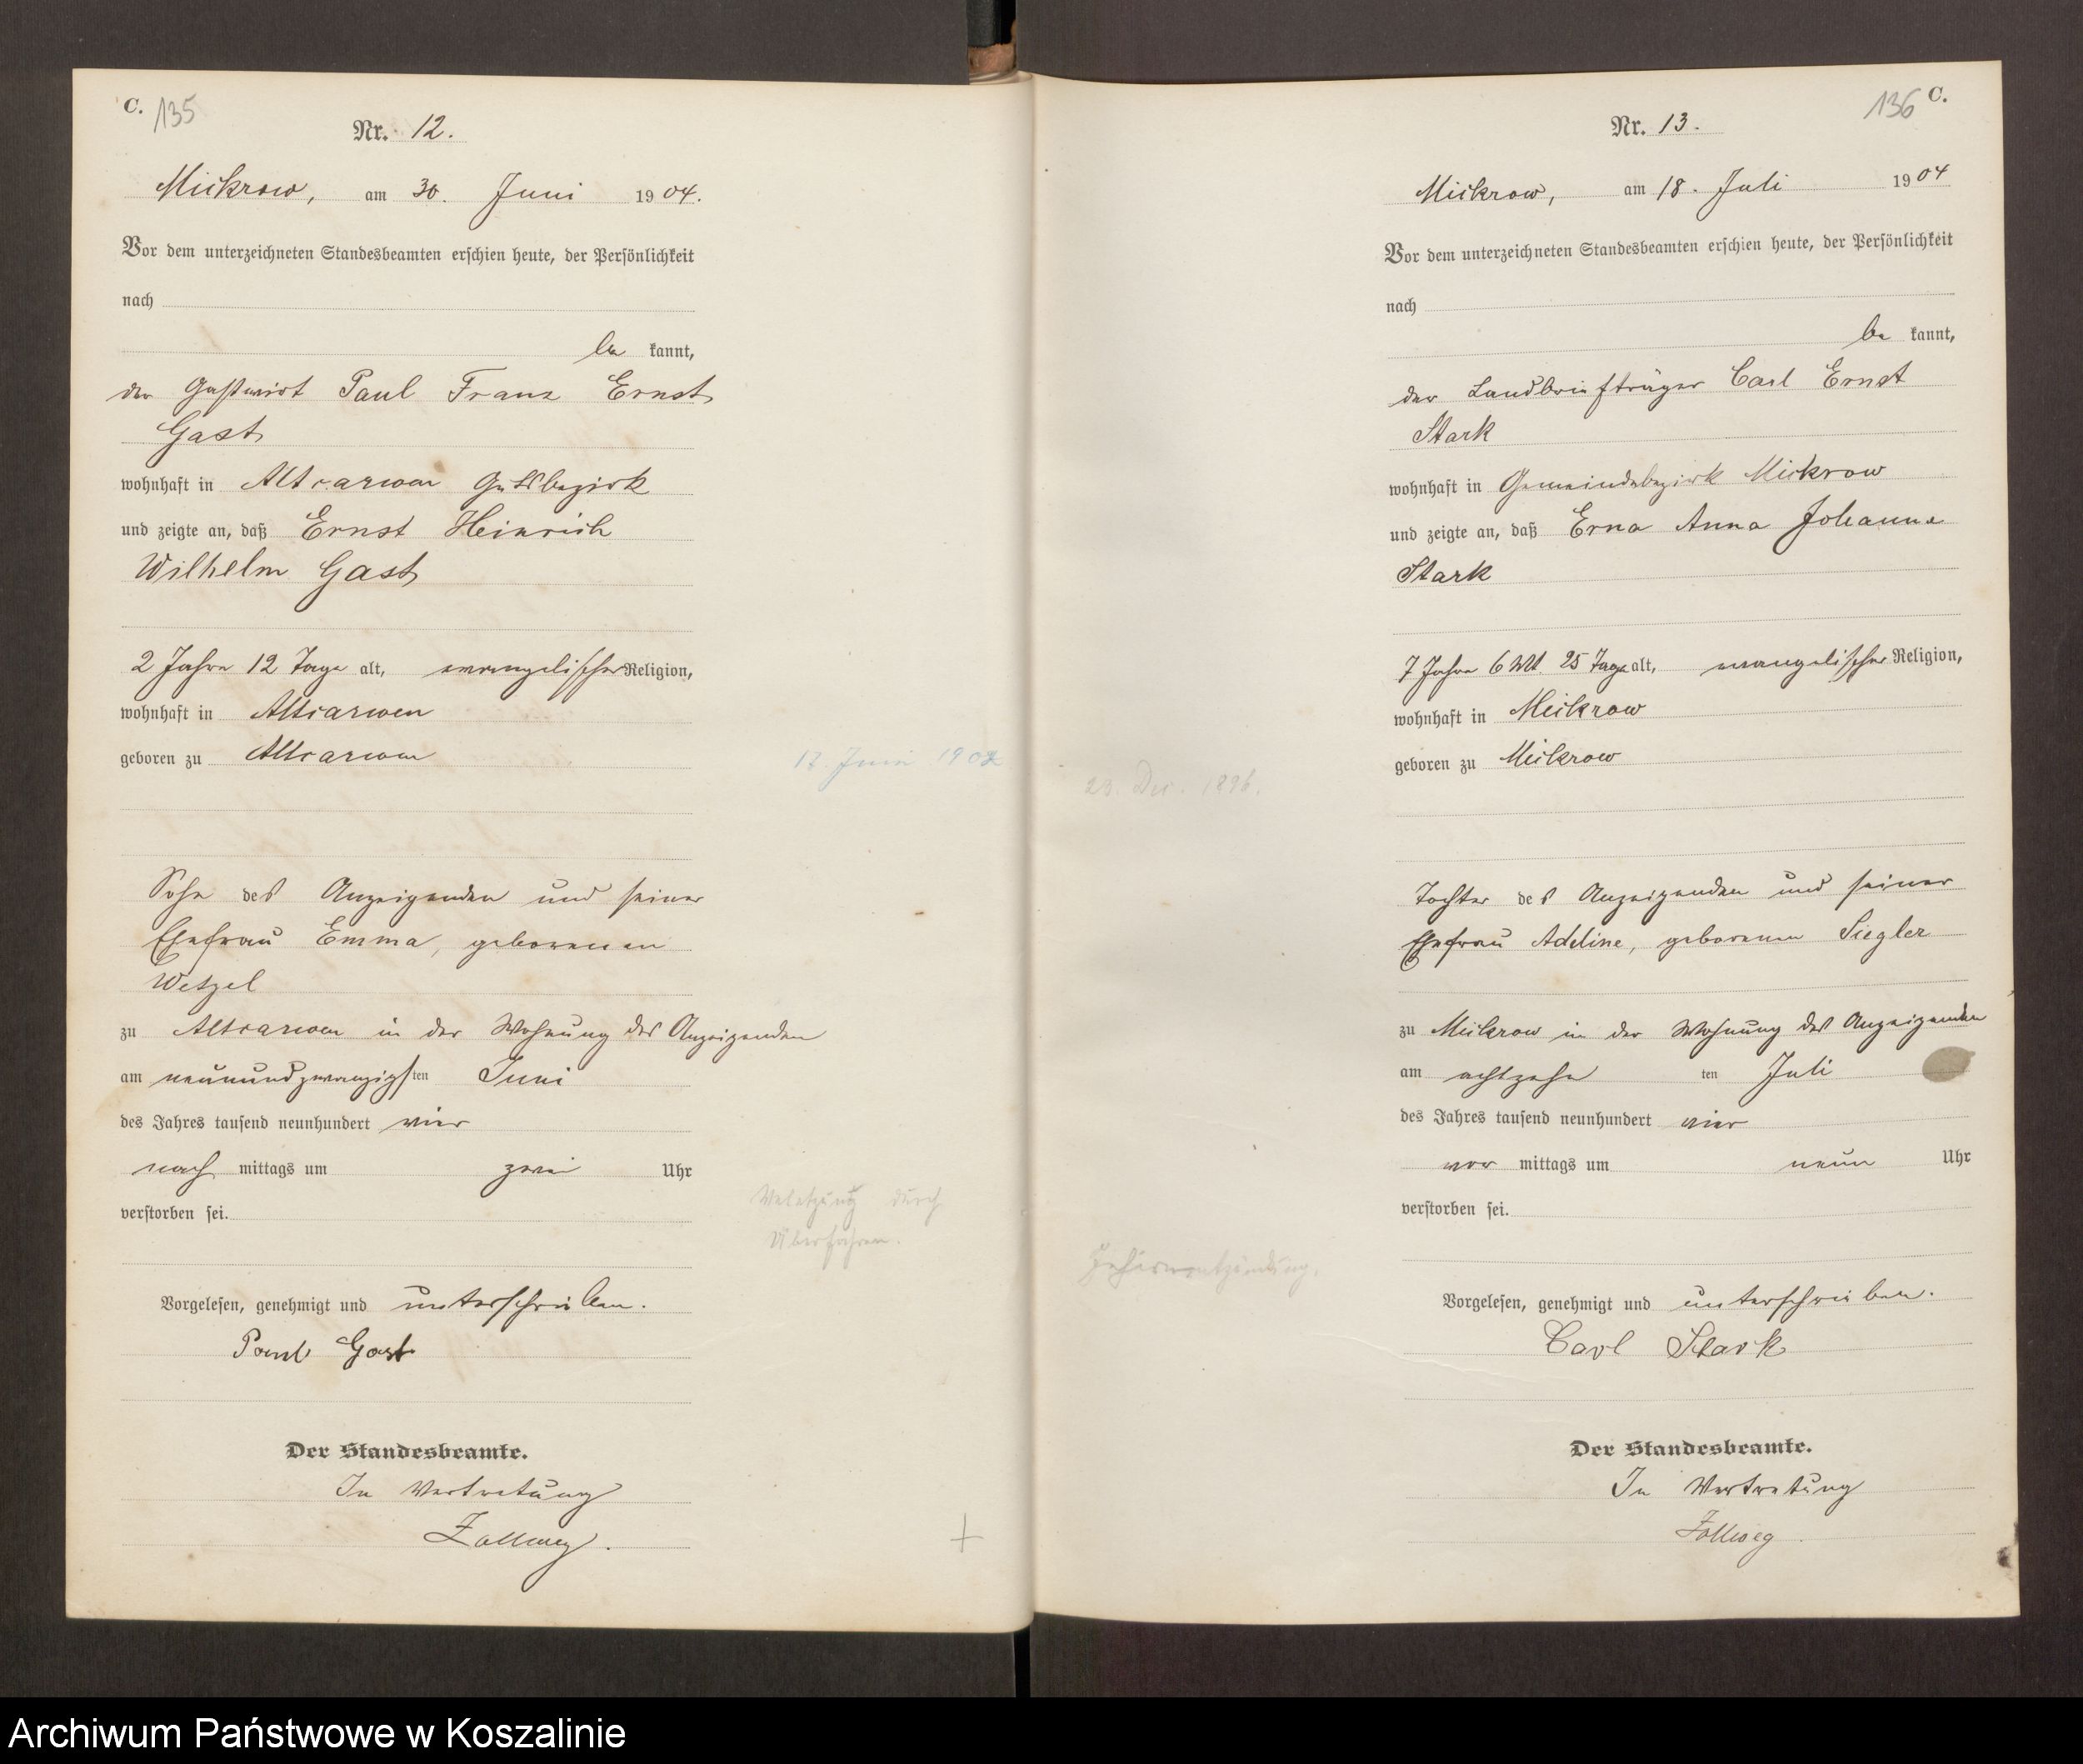 C. 135
Nr. 12.
Mickrow, am 30. Juni 1904.
Vor dem unterzeichneten Standesbeamten erschien heute, der Persönlichkeit
nach
be kannt,
der Gastwirt Paul Franz Ernst
Gast
wohnhaft in Altcarwen Gutsbezirk
und zeigte an, daß Ernst Heinrich
Wilhelm Gast
2 Jahre 12 Tage alt, evangelischer Religion,
wohnhaft in Altcarwen
geboren zu Altcarwen
17. Juni 1902
Sohn des Anzeigenden und seiner
Ehefrau Emma, geborenen
Wetzel
zu Altcarwen in der Wohnung des Anzeigenden
am neunundzwanzigsten Juni
des Jahres tausend neunhundert vier
nach mittags um zwei Uhr
verstorben sei.
durch
Überfahren.
Vorgelesen, genehmigt und unterschrieben.
Paul Gast
Der Standesbeamte.
In Vertretung
Zollweg.
136 C.
Nr. 13.
Mickrow, am 18. Juli 1904
Vor dem unterzeichneten Standesbeamten erschien heute, der Persönlichkeit
nach
be kannt,
der Landbriefträger Carl Ernst
Stark
wohnhaft in Gemeindebezirk Mickrow
und zeigte an, daß Erna Anna Johanna
Stark
7 Jahre 6 Mt. 25 Tage alt, evangelischer Religion,
wohnhaft in Mickrow
geboren zu Mickrow
23. Dez. 1896.
Tochter des Anzeigenden und seiner
Ehefrau Adeline, geborenen Siegler
zu Mickrow in der Wohnung des Anzeigenden
am achtzehn ten Juli
des Jahres tausend neunhundert vier
vor mittags um neun Uhr
verstorben sei.
Gehirnentzündung.
Vorgelesen, genehmigt und unterschrieben.
Carl Stark
Der Standesbeamte.
In Vertretung
Zollweg.
Archiwum Państwowe w Koszalinie